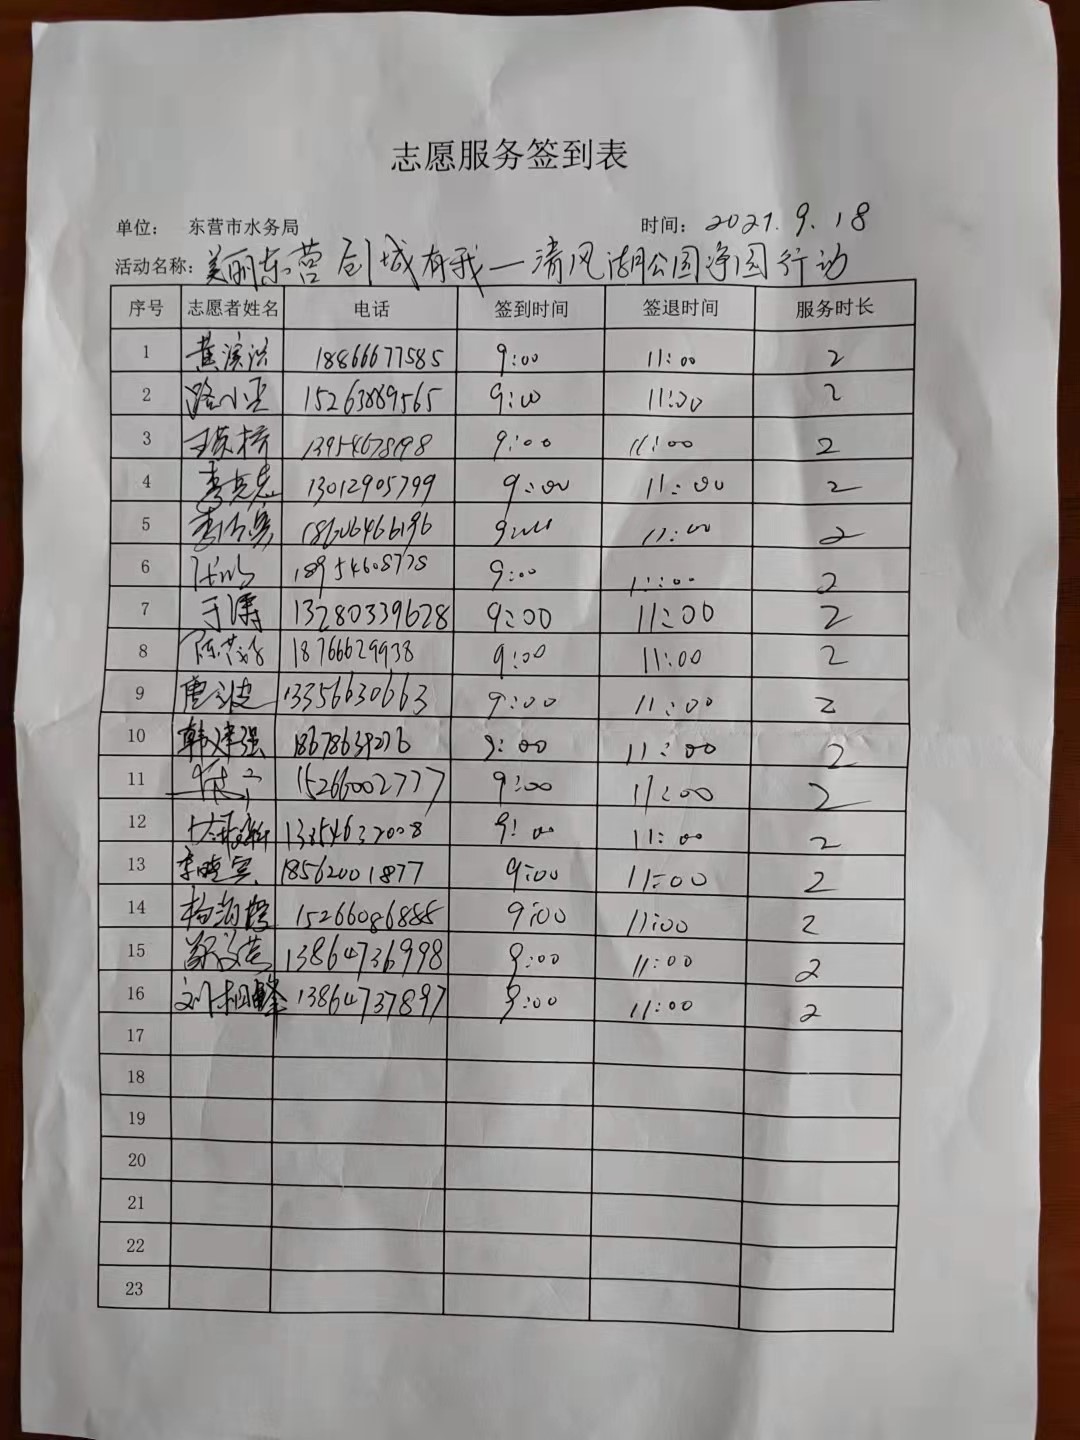 志愿服务签到表
单位： 东营市水务局 时间：2021.9.18
活动名称：美丽东营 创城有我—清风湖公园净园行动
序号 志愿者姓名 电话 签到时间 签退时间 服务时长
1 黄滨洁 18866677585 9:00 11:00 2
2 路小亚 15263889565 9:00 11:00 2
3 13954678198 9:00 11:00 2
4 李克忠 13012905799 9:00 11:00 2
5 18606466196 9:00 11:00 2
6 18954608778 9:00 11:00 2
7 于涛 13280339628 9:00 11:00 2
8 18766629938 9:00 11:00 2
9 唐剑波 13356630663 9:00 11:00 2
10 韩建强 18678639276 9:00 11:00 2
11 15266002777 9:00 11:00 2
12 13354637008 9:00 11:00 2
13 李晓宾 18562001877 9:00 11:00 2
14 杨海撑 15266086888 9:00 11:00 2
15 13864736998 9:00 11:00 2
16 刘相峰 13864737897 9:00 11:00 2
17
18
19
20
21
22
23